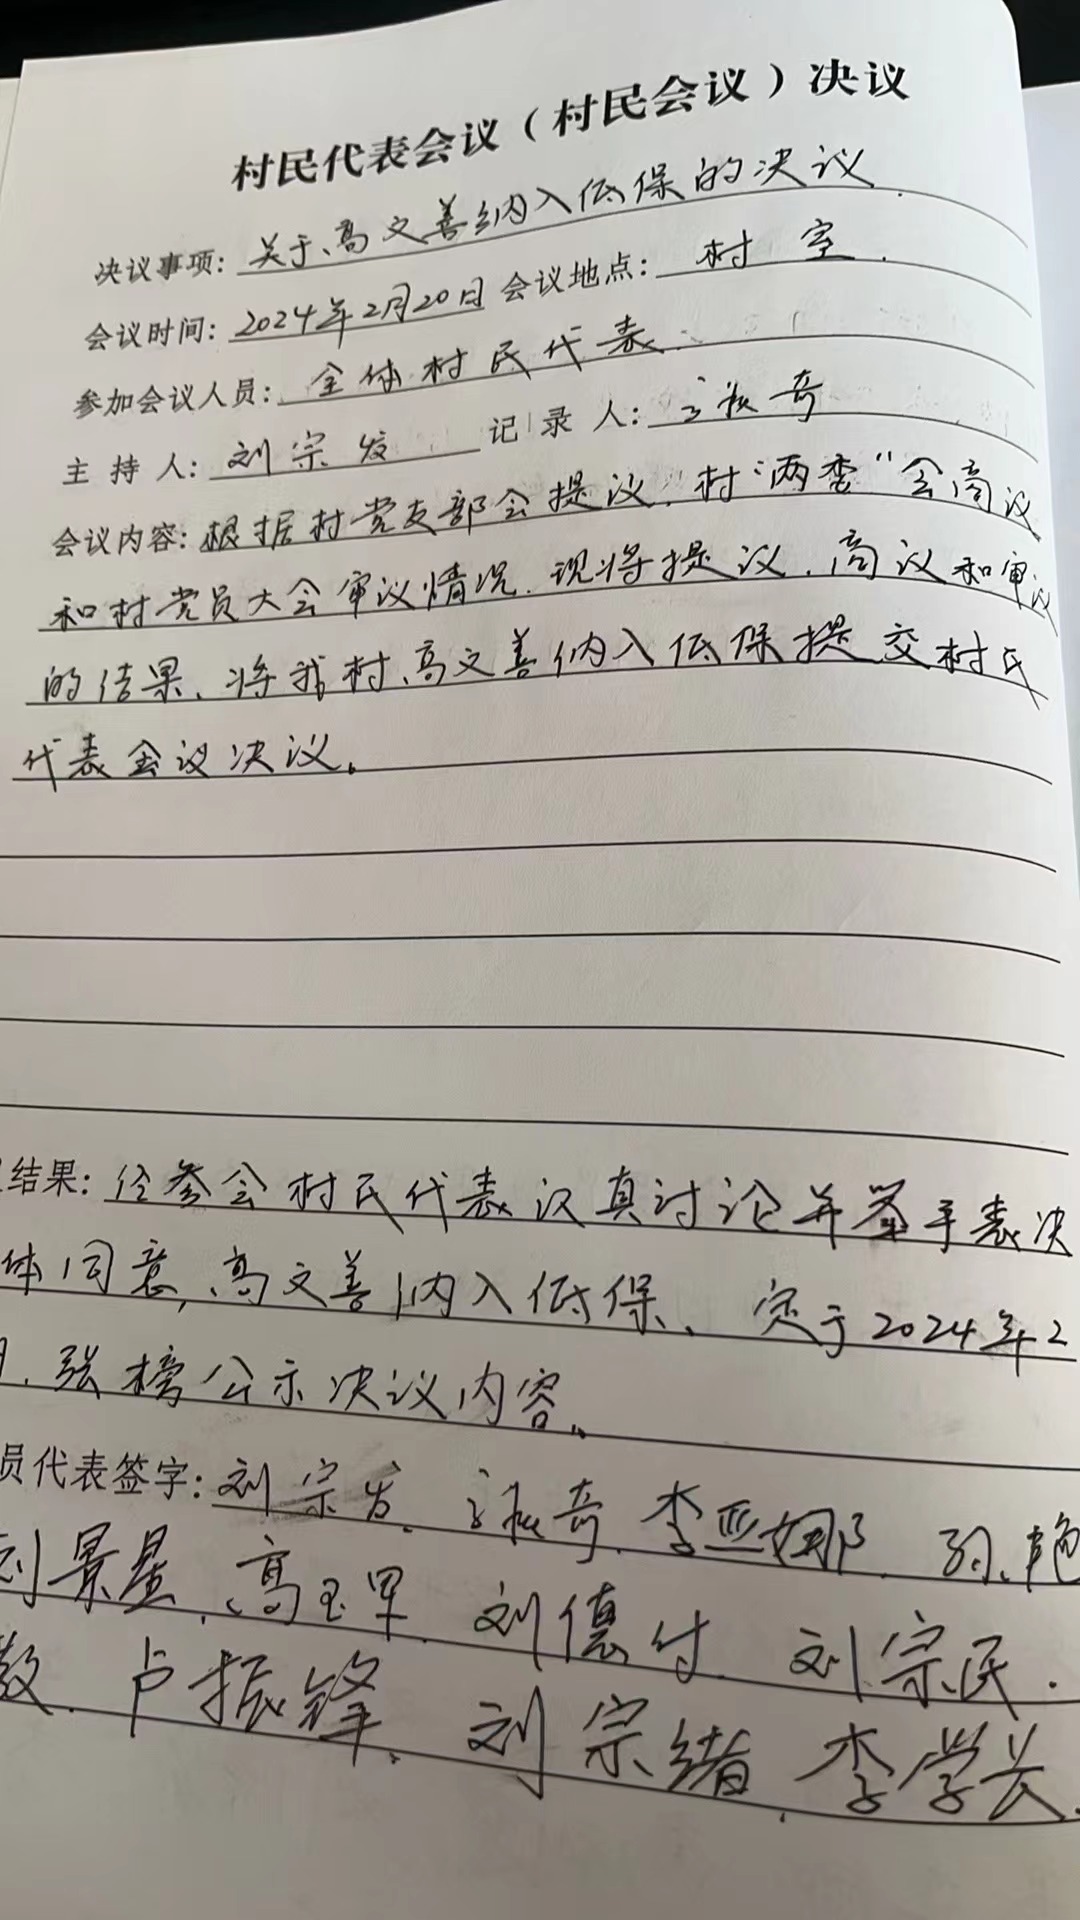 村民代表会议（村民会议）决议
决议事项：关于、高文善纳入低保的决议.
会议时间：2024年2月20日 会议地点：村室.
参加会议人员：全体村民代表.
主持人：刘宗发 记录人：奇
会议内容：根据村党支部会提议，村“两委”会商议
和村党员大会审议情况.现将提议.商议和审议
的结果、将我村、高文善纳入低保提交村民
代表会议决议。
结果：经参会村民代表认真讨论并举手表决
体同意，高文善纳入低保、定于2024年2
月.张榜公示决议内容。
员代表签字：刘宗发.奇.李亚娜.艳
刘景星.高玉军.刘德付.刘宗民.
卢振锋.刘宗绪.李学长.